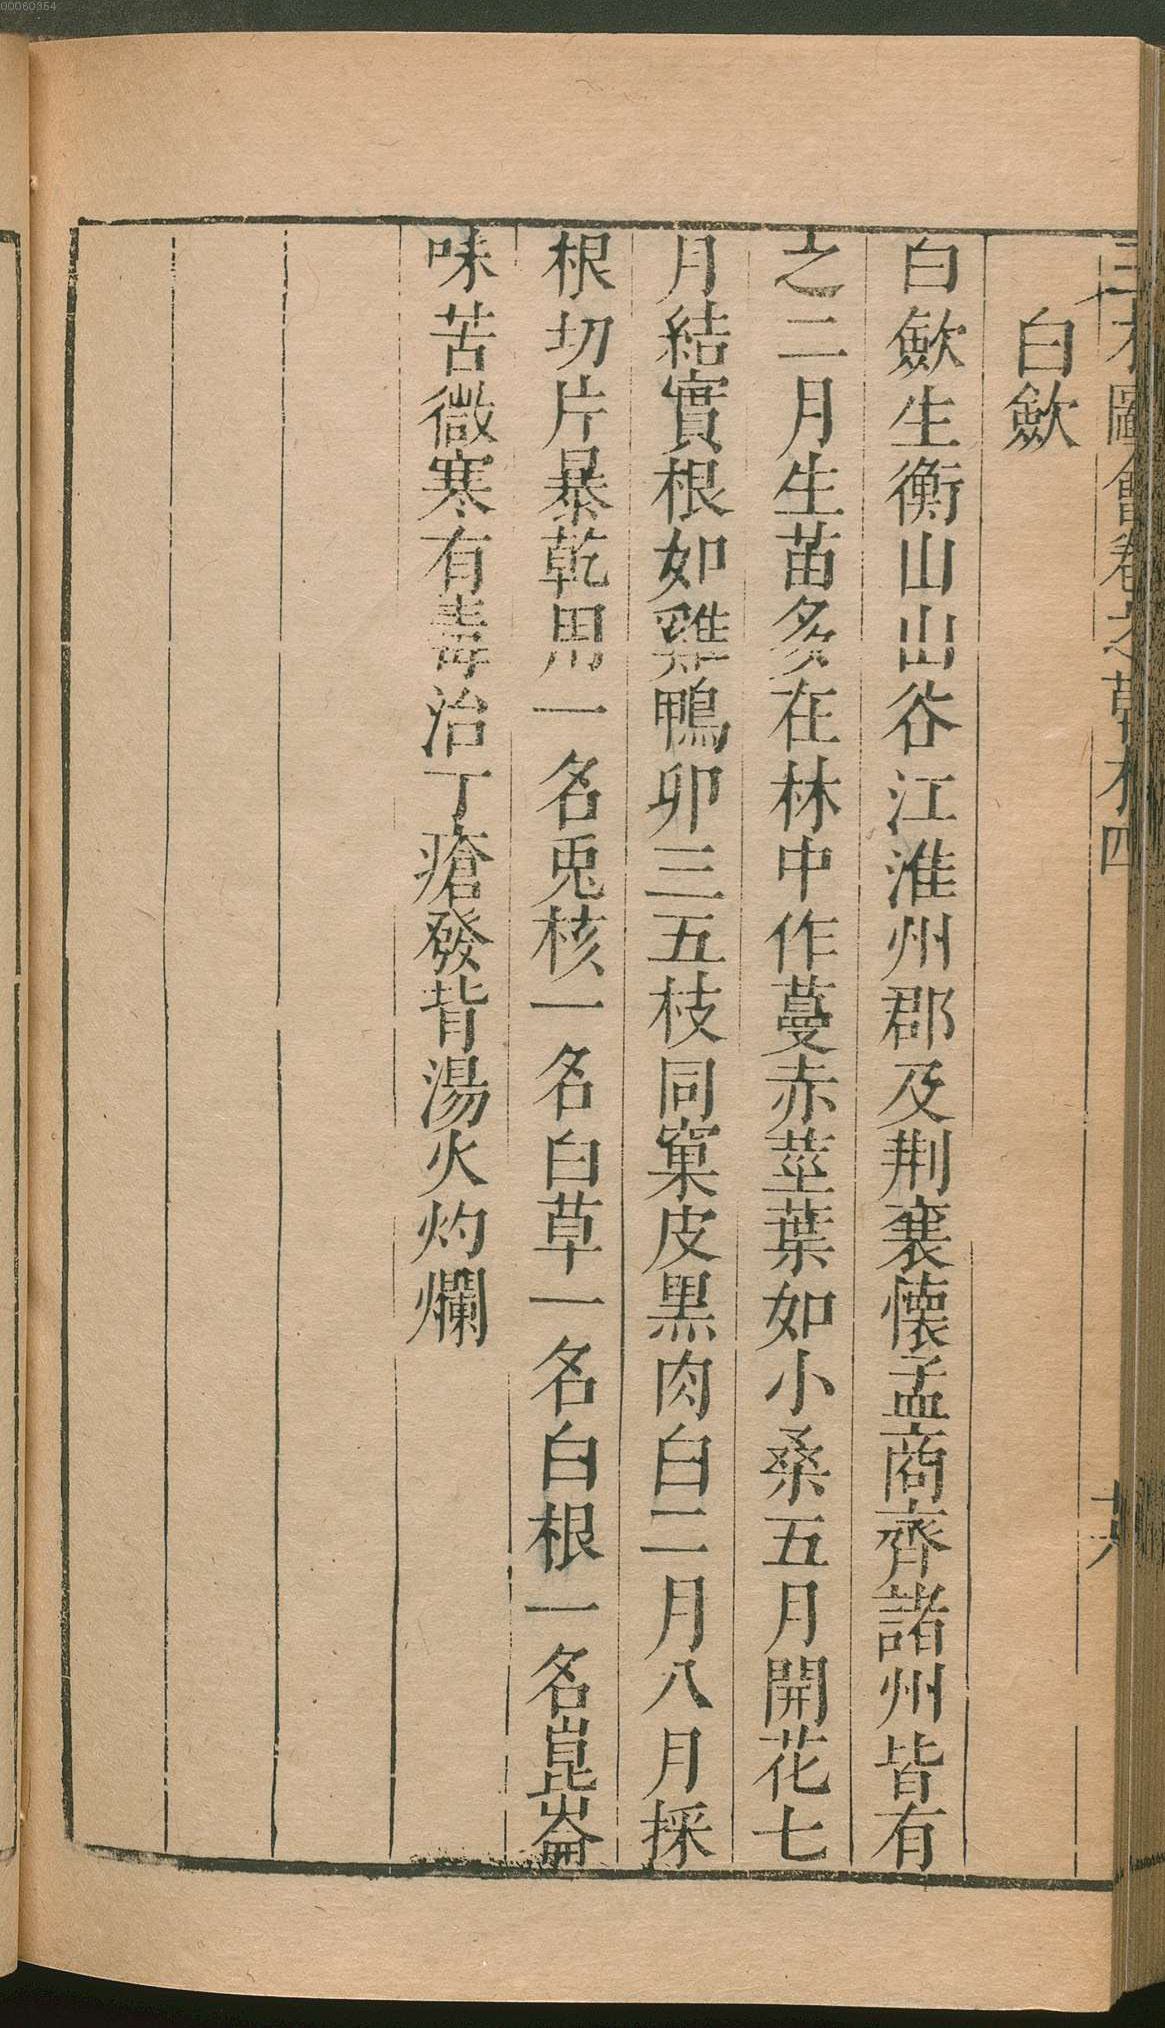 00060354
三才圖會卷之草木四
白歛
白歛生衡山山谷江淮州郡及荆襄懷孟商齊諸州皆有
之二月生苗多在林中作蔓赤莖葉如小桑五月開花七
月結實根如雞鴨卵三五枝同窠皮黑肉白二月八月採
根切片暴乾用一名兎核一名白草一名白根一名崑崙
味苦微寒有毒治丁瘡發背湯火灼爛